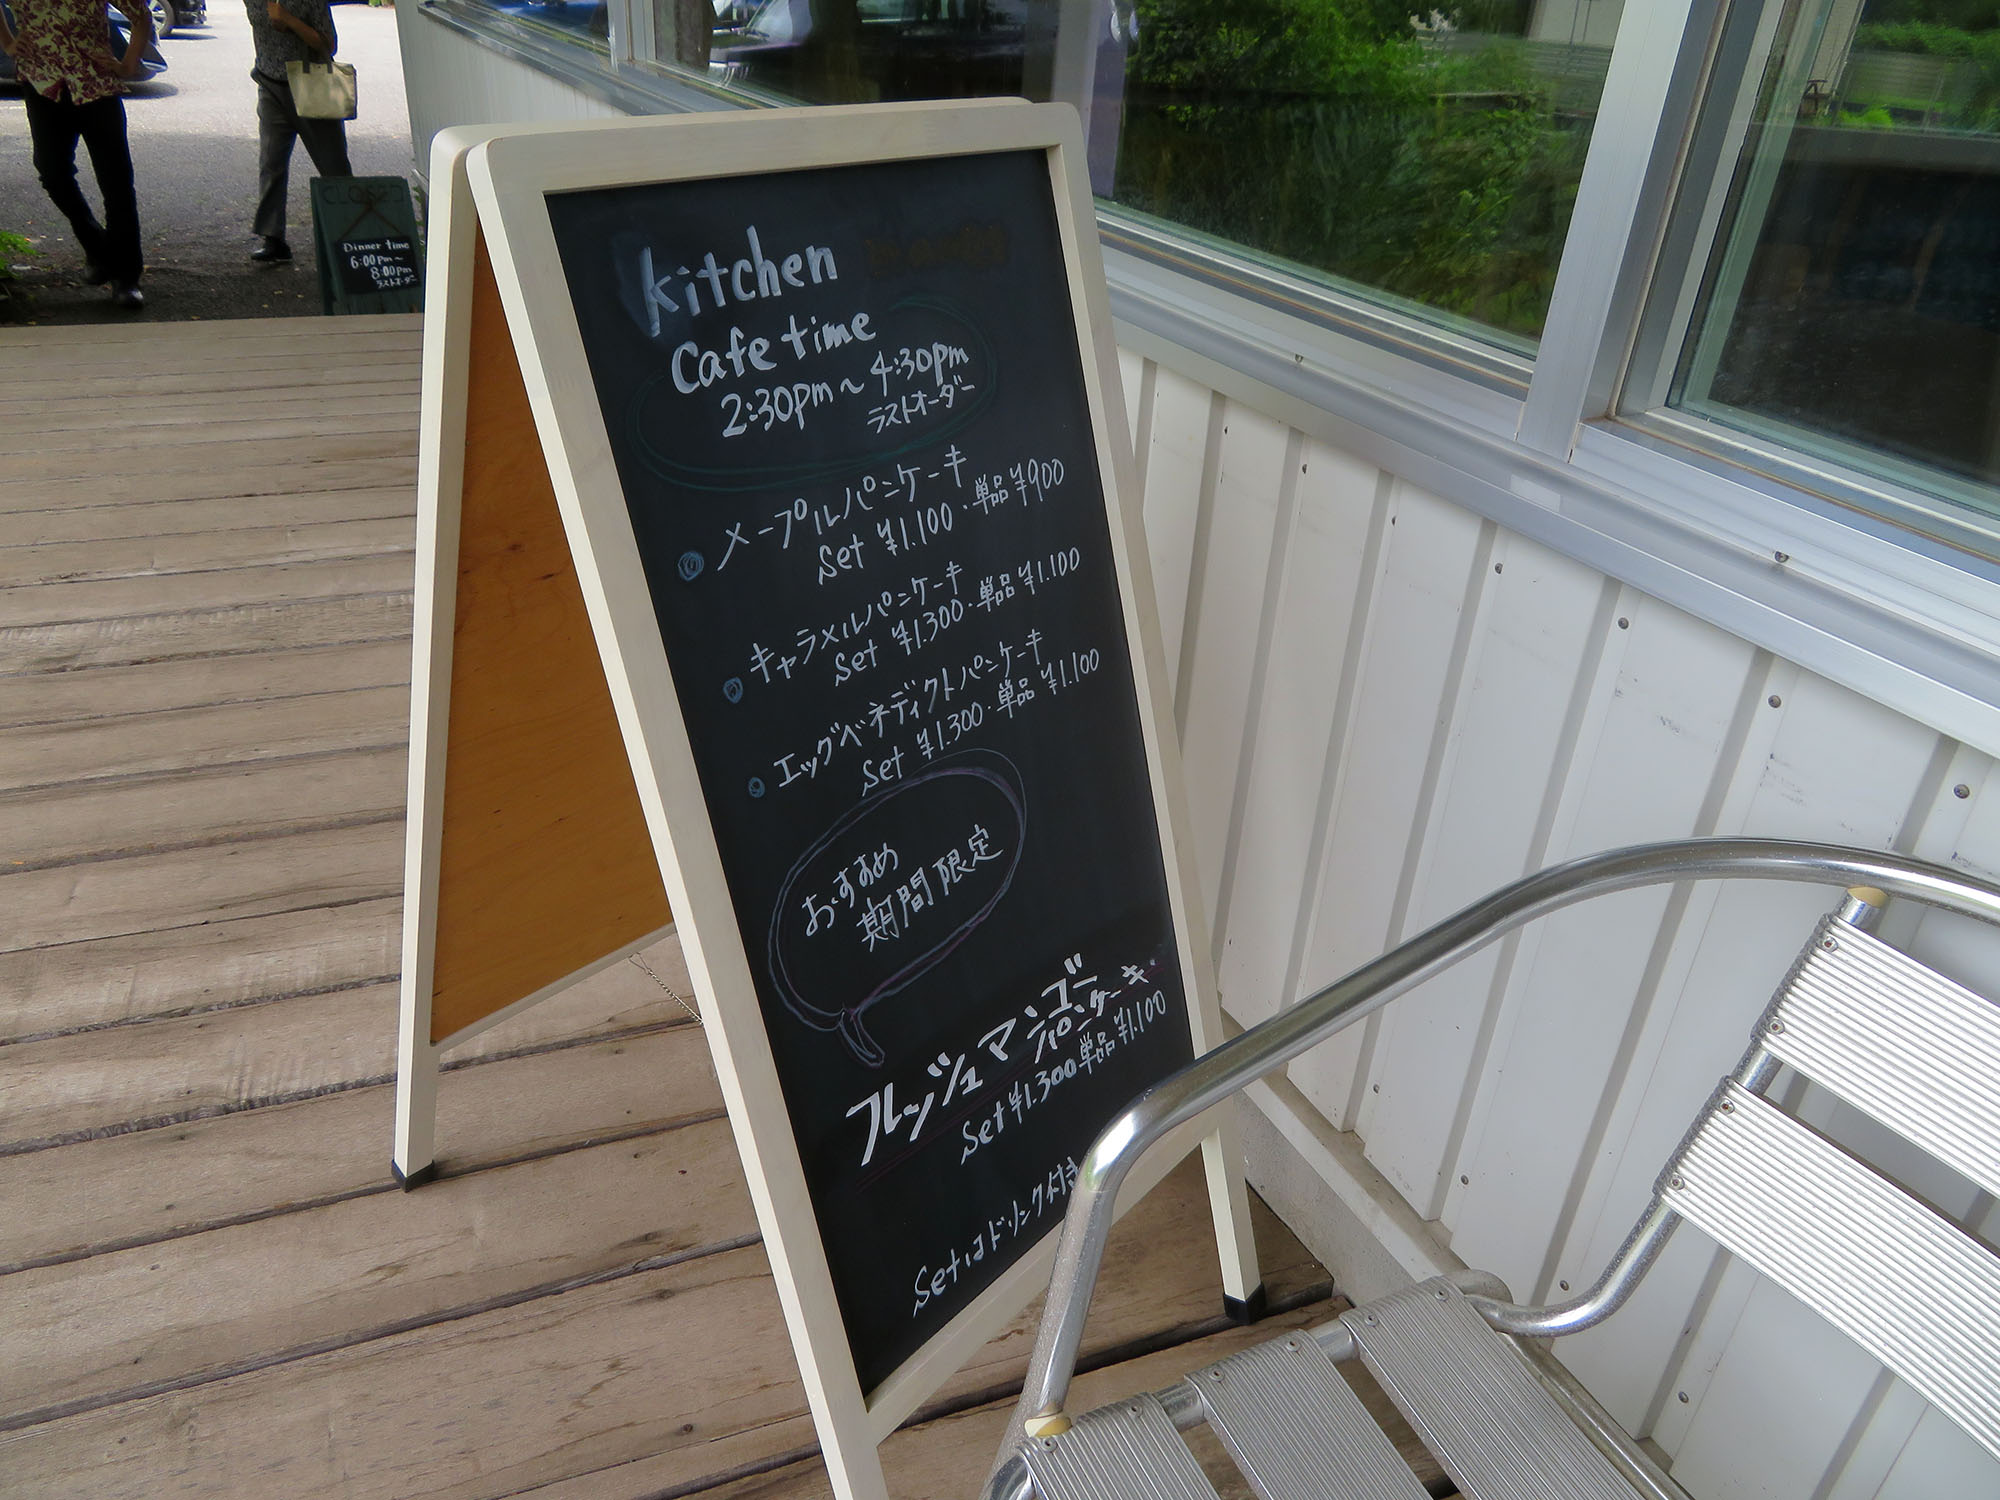 kitchen
Cafe time
2:30pm～4:30pm
ラストオーダー
メープルパンケーキ
Set ¥1.100・単品¥900
キャラメルパンケーキ
Set ¥1.300・単品¥1.100
エッグベネディクトパンケーキ
Set ¥1.300・単品¥1.100
おすすめ
期間限定
フレッシュマンゴー
パンケーキ
Set ¥1.300 単品¥1.100
Setはドリンク付き
CLOSED
Dinner time
6:00pm～
8:00pm
ラストオーダー